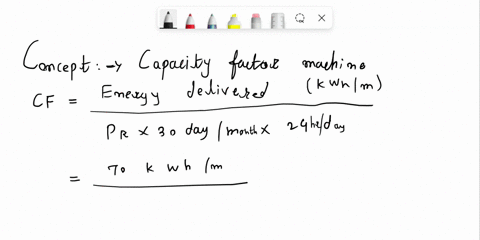 Concept :→ Capacity factor machine
CF = Energy delivered (kWh/m)
PR × 30 day/month × 24hr/day
= 70 k wh/m